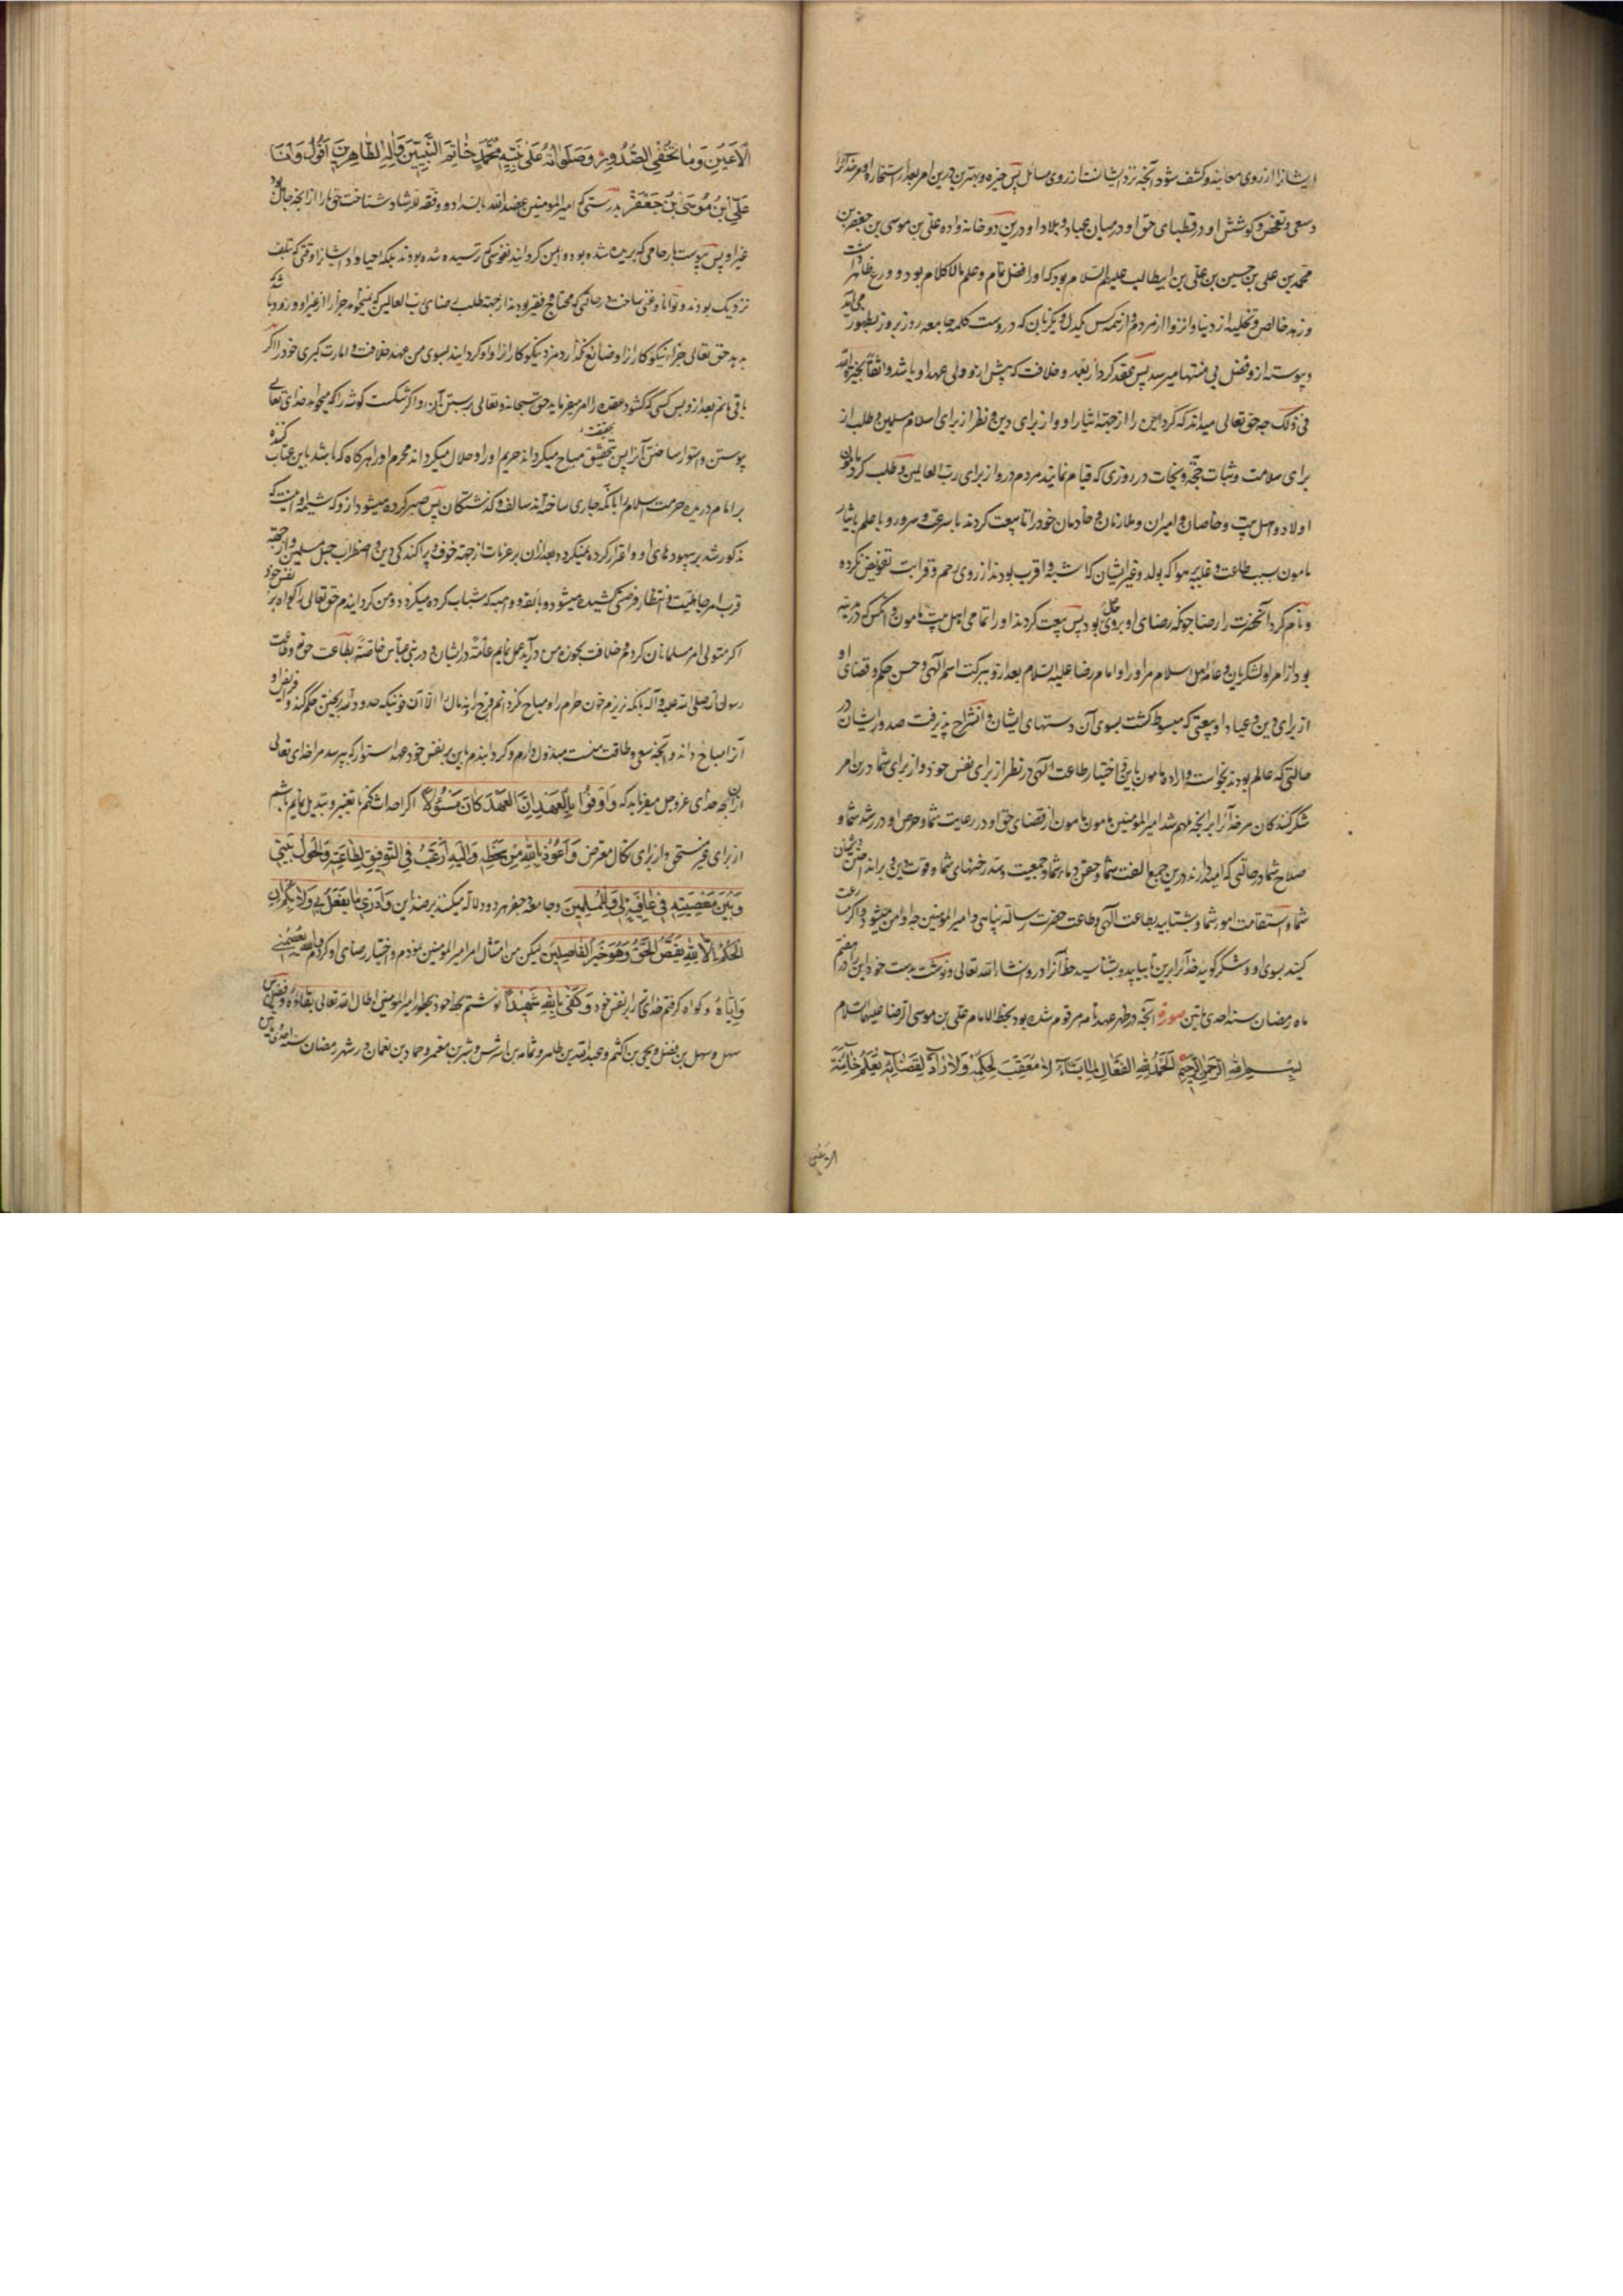 ایشانرا از روی معاینه و کشف شود آنچه نزد ایشانست از روی مسائل پس خیره و بهترین درین امر بعد از استخاره او مر خدا را
و سعی و تفحص و کوشش او در قضای حق او در میان عباد و بلاد او درین دو خانه واده علی بن موسی بن جعفر بن
محمد بن علی بن حسین بن علی بن ابیطالب علیهم السلام بود که او را فضل تام و علم مالاکلام بود و ورع ظاهر داشت
و زهد خالص و تخلیه از دنیا و انزوا از مردم و از همه کس یکدل و یکزبان که دروست کلمه جامعه روز بروز بظهور می آید
و پیوسته ازو فضل بی منتها میرسد پس عقد کرد از بعد و خلافت که پس ازو ولی عهد او باشد واثقا بخیرة الله
فی ذلک چه حق تعالی میداند که کرد این را از جهة ایثار او و از برای دین و نظر از برای اسلام و مسلمین و طلب از
برای سلامت و ثبات حجة و نجات در روزی که قیام نمایند مردم درو از برای رب العالمین و طلب کرد مامون
اولاد و اهل بیت و خاصان و امیران و ملازمان و خادمان خود را تا بیعت کردند با سرعت و سرور و با علم بایثار
مامون سبب طاعت و غلبه بر هوا که بولد و غیر ایشان که اشبه و اقرب بودند از روی رحم و قرابت تفویض نکرده
و نام کرد آنحضرت را رضا چونکه رضای او بروی بود پس بیعت کردند او را تمامی اهل بیت مامون و آنکس که در مدینه
بود از امرا و لشکریان و عامه اهل اسلام مر او را و امام رضا علیه السلام بعد ازو ببرکت اسم الهی و حسن حکم و قضای او
از برای دین و عباد او بیعتی که مبسوط کشت بسوی آن دستهای ایشان و انشراح پذیرفت صدور ایشان در
حالتی که عالم بودند بخواست و اراده مامون باین و اختیار طاعت الهی در نظر از برای نفس خود و از برای شما درین امر
شکر کنندکان مر خدا را بر آنچه ملهم شد امیر المؤمنین مامون از قضای حق او در رعایت شما و حرص او در رشد شما و
صلاح شما در حالتی که امیدوارند درین جمع الفت شما و حقن دماء شما و جمعیت و سد رخنهای شما و قوت دین
شما و استقامت امور شما و بشتابید بطاعت الهی و طاعت حضرت رسالة پناهی و امیر المؤمنین چه او امن میشود و اگر مسارعت
کنید بسوی او و شکر گویید خدا را برین تا بیابید و بشناسید حظ آنرا درو انشاء الله تعالی و نوشت بدست خود این را در هفتم
ماه رمضان سنه احدی و مأتین صوره آنچه در ظهر عهدنامه مرقوم شده بود بخط الامام علی بن موسی الرضا علیهما السلام
بسم الله الرحمن الرحیم الحمد لله الفعال لما یشاء لا معقب لحکمه ولا راد لقضائه یعلم خائنة
الاعین
الاعین وما تخفی الصدور وصلواته علی نبیه محمد خاتم النبیین وآله الطاهرین اقول وانا
علی ابن موسی بن جعفر بدرستی که امیر المومنین عضده الله بالسداد و وفقه للرشاد شناخت حق ما را از آنچه جاهل بود
غیر او پس پیوست بارحامی که بریده شده بود و ایمن کردانید نفوسی که ترسیده شده بودند بلکه احیا داد ایشانرا وقتی که بتلف
نزدیک بودند و توانا و غنی ساخت در حالتی که محتاج و فقیر بودند از جهة طلب رضای رب العالمین که نمیخواهد جزا را از غیر او و زود باشد که
بدهد حق تعالی جزاء نیکوکارانرا و ضایع نکذارد مزد نیکوکارانرا و او کردانید بسوی من عهد خلافت و امارت کبری خود را اگر
باقی مانم بعد ازو پس کسی که کشود عقده را که امر میفرماید حق سبحانه و تعالی به بستن آن و اگر شکست گوشه را که میخواهد خدای تعالی
پیوستن و استوار ساختن آنرا پس بتحقیق مباح میکرداند حریم او را و حلال میکرداند محرم او را هرگاه که باشد باین عتاب کننده
بر امام درنده حرمت اسلام را بآنکه جاری ساخته اند سالف و گذشتگان پس صبر کرده میشود ازو که شیمه او اینست که
مذکور شد بر بیهودهای او و اعتراض کرده نمیکردد بعد از آن بر عزمات از جهة خوف و پراکندگی دین و اضطراب حبل مسلمین و از جهة
قرب امر جاهلیت و انتظار فرصتی که کشیده میشود و بائقه و داهیه که شتاب کرده میکردد و من کردانیدم حق تعالی را گواه بر نفس خود
اگر متولی امر مسلمانان کردم و خلافت بحوزه من درآید عمل نمایم عامة در ایشان و در بنی عباس خاصة بطاعت حق و طاعت
رسول او صلی الله علیه و آله بآنکه نریزم خون حرام را و مباح نکردانم فرج را و نه مال را الا آن خونیکه حدود الله بریختن حکم کند و فرایض او
آنرا مباح داند و آنچه سعی و طاقت منست مبذول دارم و کردانیدم باین بر نفس خود عهد استوار که بپرسد مرا خدای تعالی
از آن چه خدای عزوجل میفرماید که واوفوا بالعهد ان العهد کان مسؤلا اگر احداث کنم یا تغییر و تبدیل نمایم باشم
از برای غیر مستحق و از برای نکال معرض واعوذ بالله من سخطه والیه ارغب فی التوفیق لطاعته والحول بینی
وبین معصیته فی عافیة لی وللمسلمین و جامعه و جفر هر دو دلالة میکنند بر ضد این وما ادری ما یفعل بی ولا بکم ان
الحکم الا لله یقص الحق وهو خیر الفاصلین لیکن من امتثال امر امیر المؤمنین نمودم و اختیار رضای او کردم والله یعصمنی
وایاه و گواه گرفتم خدای را بر نفس خود وکفی بالله شهیدا نوشتم بخط خود بحضور امیر المؤمنین اطال الله تعالی بقاؤه و فضل بن
سهل و سهل بن فضل و یحیی بن اکثم و عبد الله بن طاهر و ثمامه بن اشرس و بشر بن معتمر و حماد بن نعمان در شهر رمضان سنه احدی و مأتین